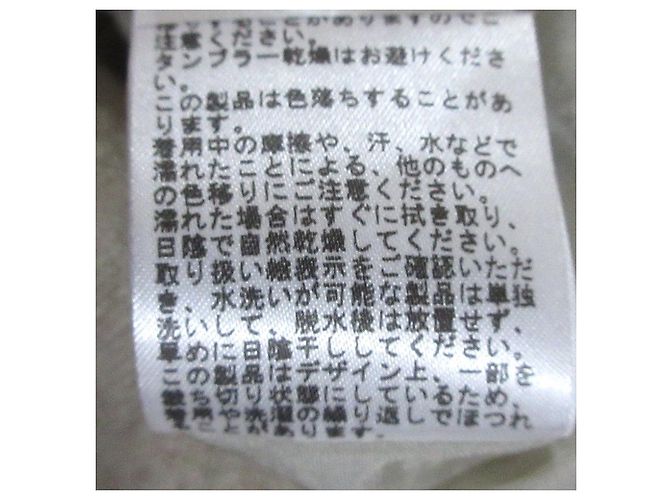 ことがありますのでご
注意ください。
タンブラー乾燥はお避けくださ
い。
この製品は色落ちすることがあ
ります。
着用中の摩擦や、汗、水などで
濡れたことによる、他のものへ
の色移りにご注意ください。
濡れた場合はすぐに拭き取り、
日陰で自然乾燥してください。
取り扱い絵表示をご確認いただ
き、水洗いが可能な製品は単独
洗いして、脱水後は放置せず、
早めに日陰干ししてください。
この製品はデザイン上、一部を
裁ち切り状態にしているため、
着用や洗濯の繰り返しでほつれ
があります。